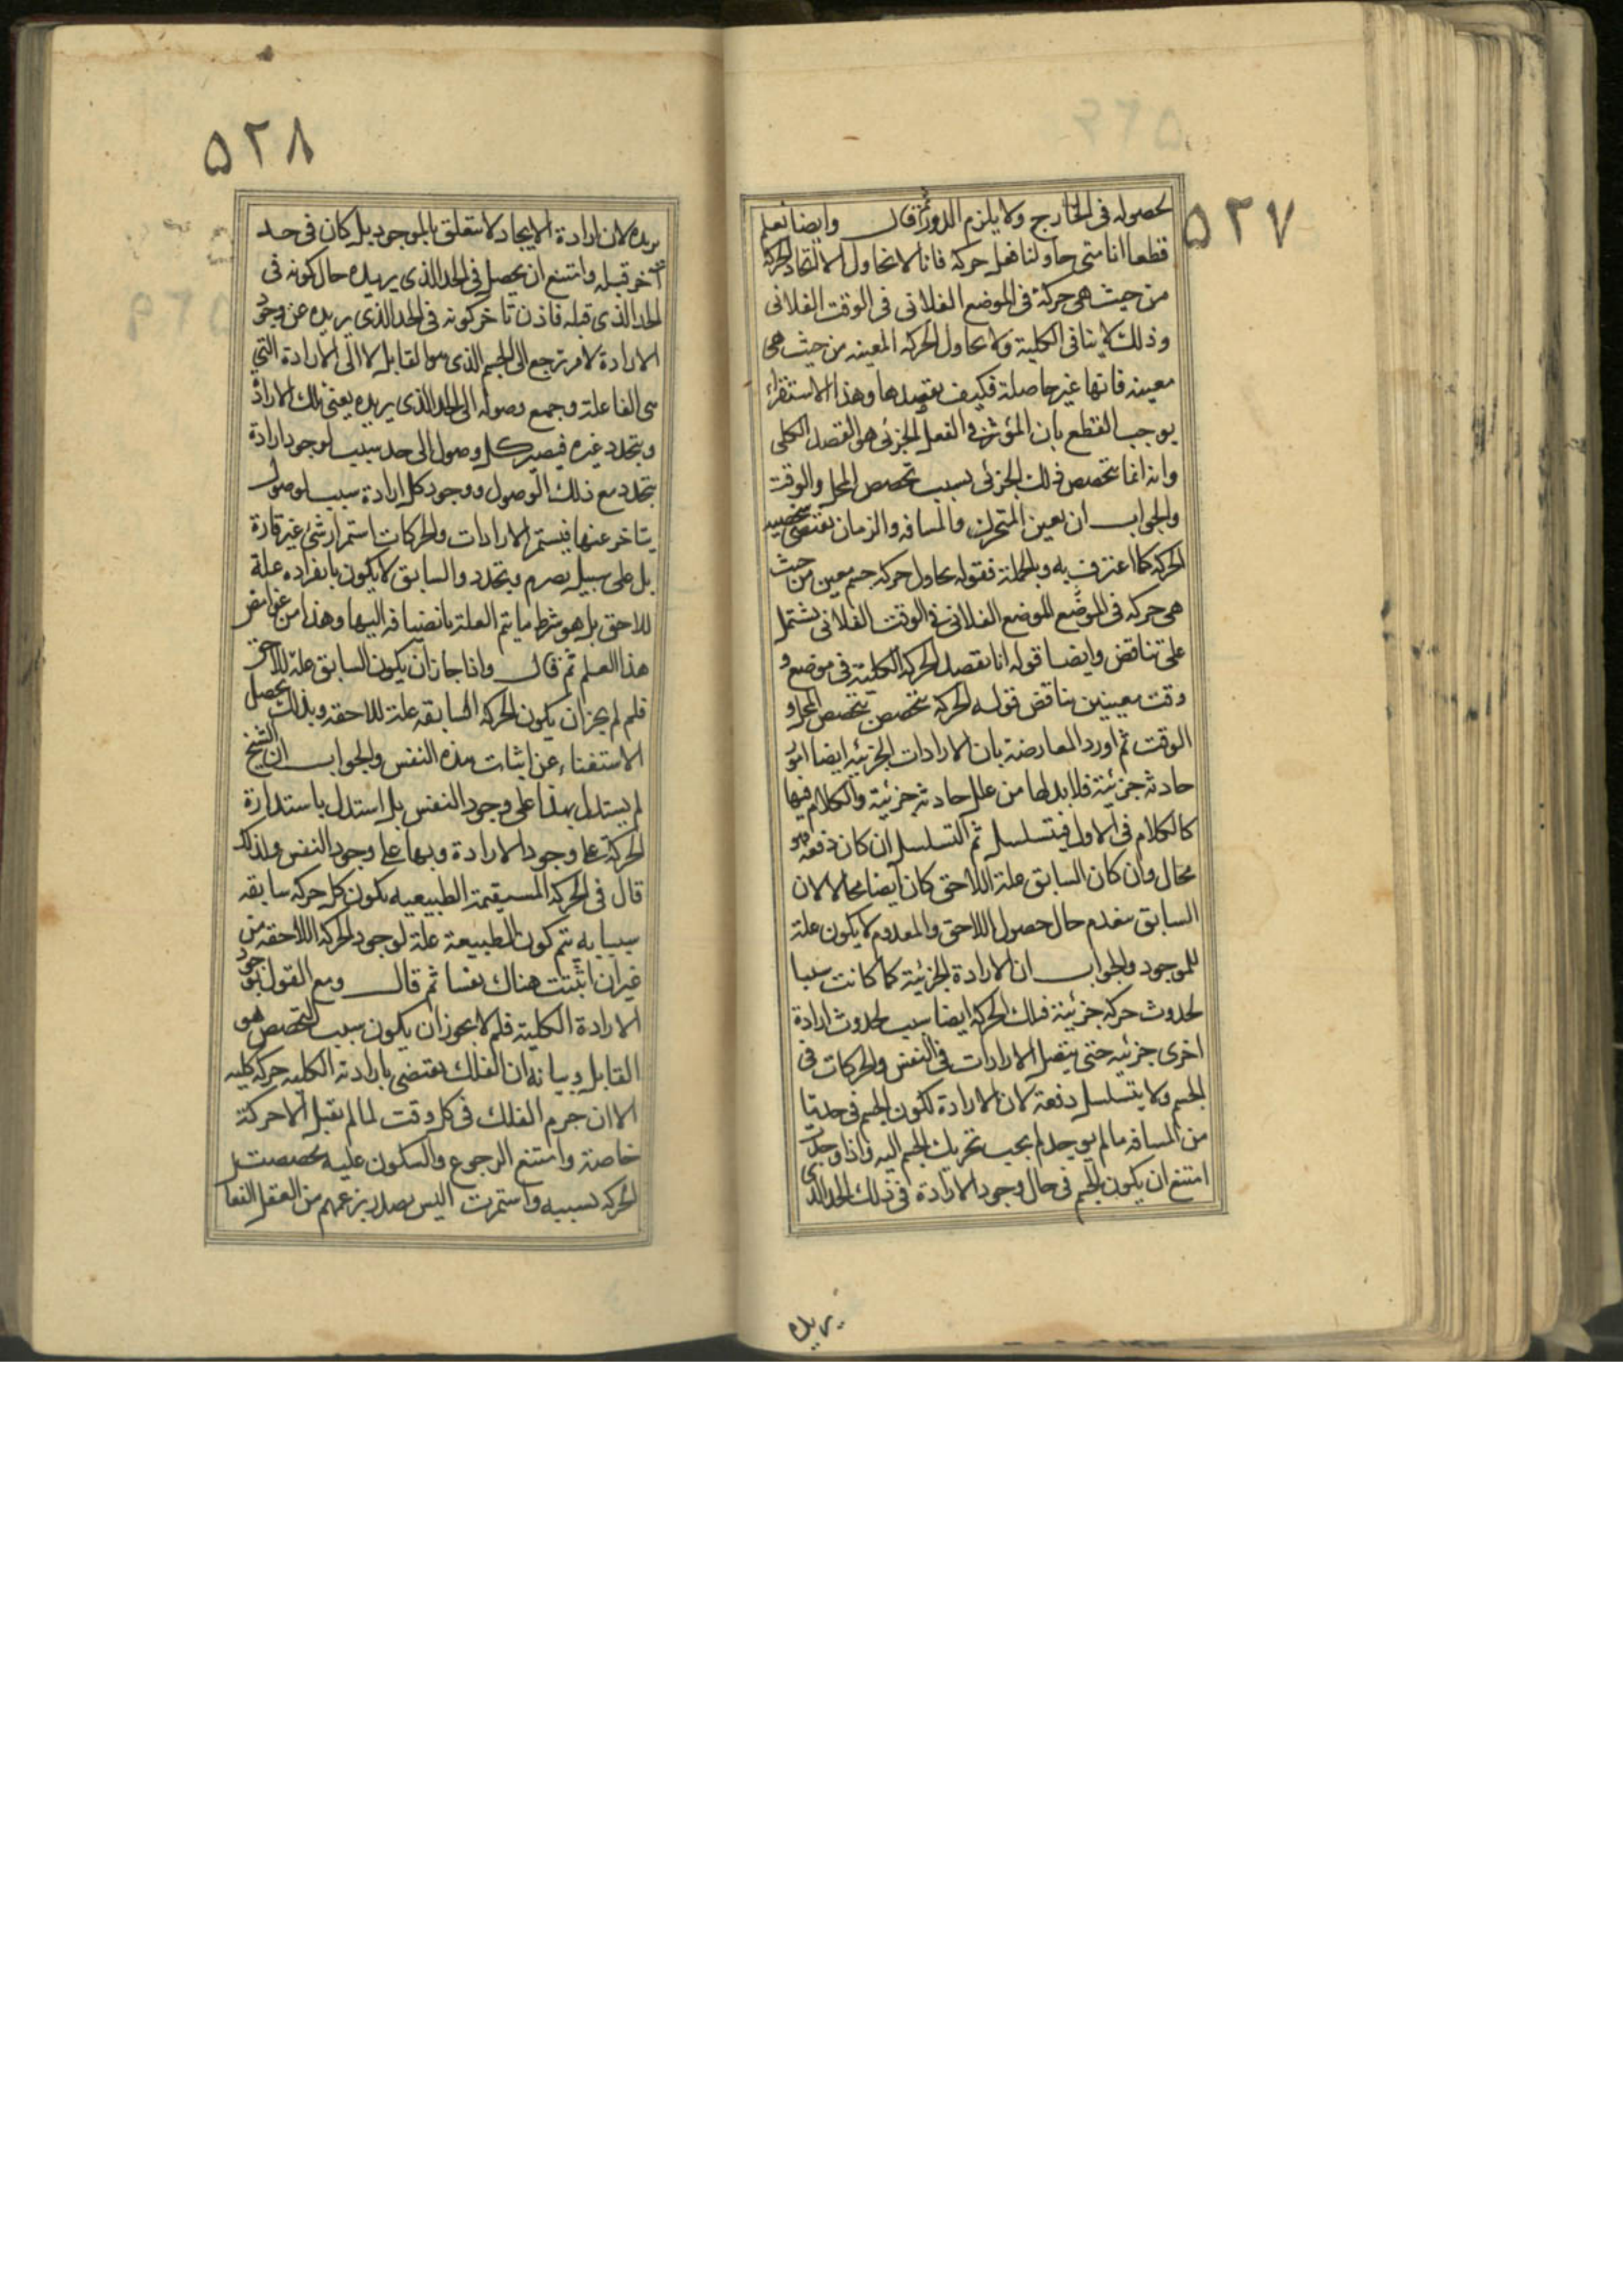 ۵۲۷
لحصوله فى الخارج ولا يلزم الدور ثم قال وايضا نعلم
قطعا انا متى حاولنا فعل حركة فانا لا نحاول الا اتحاد الحركة
من حيث هى حركة فى الموضع الفلانى فى الوقت الفلانى
وذلك لا ينافى الكلية ولا نحاول الحركة المعينه من حيث هى
معينه فانها غير حاصلة فكيف نقصدها وهذا الاستقراء
يوجب القطع بان المؤثر فى الفعل الجزئى هو القصد الكلى
وانه انما يتخصص ذلك الجزئى بسبب تخصص المحل والوقت
والجواب ان تعين المتحرك والمسافه والزمان يقتضى شخصيه
الحركه كما اعترف به وبالجملة فقوله نحاول حركه جسم معين من حيث
هى حركه فى الموضع للموضع الفلانى فى الوقت الفلانى يشتمل
على تناقض وايضا قوله انا نقصد الحركه الكلية فى موضع و
وقت معينين يناقض قوله الحركه يتخصص بتخصص المحل و
الوقت ثم اورد المعارضة بان الارادات الجزئيه ايضا امور
حادثه جزئية فلا بد لها من علل حادثه جزئية والكلام فيها
كالكلام فى الاول فيتسلسل ثم التسلسل ان كان دفعة فهو
محال وان كان السابق علة اللاحق كان ايضا محالا لان
السابق ينعدم حال حصول اللاحق والمعدوم لا يكون علة
للموجود والجواب ان الارادة الجزئية كما كانت سببا
لحدوث حركه جزئية فتلك الحركه ايضا سبب لحدوث ارادة
اخرى جزئيه حتى يتصل الارادات فى النفس والحركات فى
الجسم ولا يتسلسل دفعة لان الارادة لكون الجسم فى حد ما
من المسافه ما لم يوجد لم يجب تحريك الجسم اليه واذا وجدت
امتنع ان يكون الجسم فى حال وجود الارادة فى ذلك الحد الذى
يريده
۵۲۸
يريده لان ارادة الايجاد لا يتعلق بالموجود بل كان فى حد
آخر قبله وامتنع ان يحصل فى الحد الذى يريده حال كونه فى
الحد الذى قبله فاذن تاخر كونه فى الحد الذى يريده عن وجود
الارادة لامر يرجع الى الجسم الذى هو القابل لا الى الارادة التى
هى الفاعلة وجمع وصوله الى الحد الذى يريده يعنى تلك الارادة
ويتجدد غيره فيصير كل وصول الى حد سببا لوجود ارادة
يتجدد مع ذلك الوصول ووجود كل ارادة سببا لوصول
يتاخر عنها فيستمر الارادات والحركات استمرار شئ غير قارة
بل على سبيل تصرم وتجدد والسابق لا يكون بانفراده علة
للاحق بل هو شرط ما يتم العلة بانضيافه اليها وهذا من غوامض
هذا العلم ثم قال واذا جاز ان يكون السابق علة للاحق
فلم لم يجز ان يكون الحركه السابقه علة للاحقه وبذلك يحصل
الاستغناء عن اثبات هذه النفس والجواب ان الشيخ
لم يستدل بهذا على وجود النفس بل استدل باستدارة
الحركة على وجود الارادة وبها على وجود النفس ولذلك
قال فى الحركه المستقيمة الطبيعيه يكون كل حركه سابقه
سببا به يتم كون الطبيعة علة لوجود الحركه اللاحقه من
غير ان اثبتت هناك نفسا ثم قال ومع القول بوجود
الارادة الكلية فلم لا يجوز ان يكون سبب التخصص هو
القابل وبيانه ان الفلك يقتضى بارادته الكليه حركه كليه
الا ان جرم الفلك فى كل وقت لما لم يقبل الا حركة
خاصة وامتنع الرجوع والسكون عليه تخصصت
الحركه بسببه واستمرت اليس يصدر بزعمهم من العقل الفعا